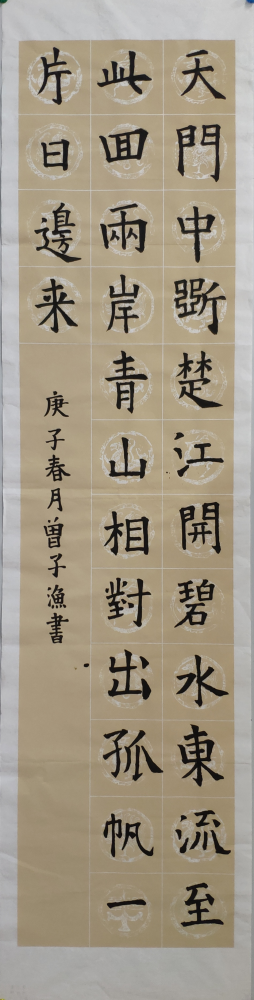 天門中斷楚江開碧水東流至
此回兩岸青山相對出孤帆一
片日邊来
庚子春月曾子漁書